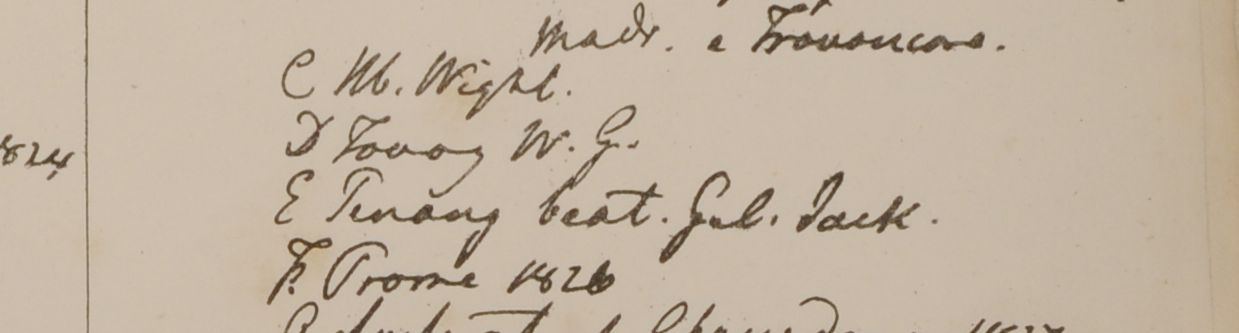 Madr. e Travancore.
C Hb. Wight.
D Tavoy W. G.
1824
E Penang beat. Gul. Jack.
F. Prome 1826